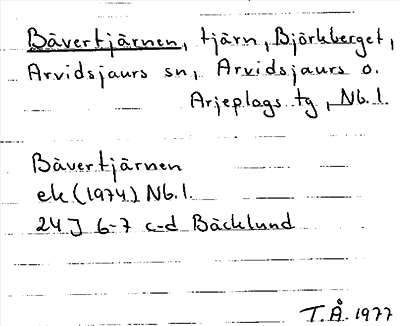 Bävertjärnen, tjärn, Björkberget,
Arvidsjaurs sn, Arvidsjaurs o.
Arjeplogs tg, Nb. l.
Bävertjärnen
ek (1974) Nb. l.
24J 6-7 c-d Bäcklund
T.Å. 1977